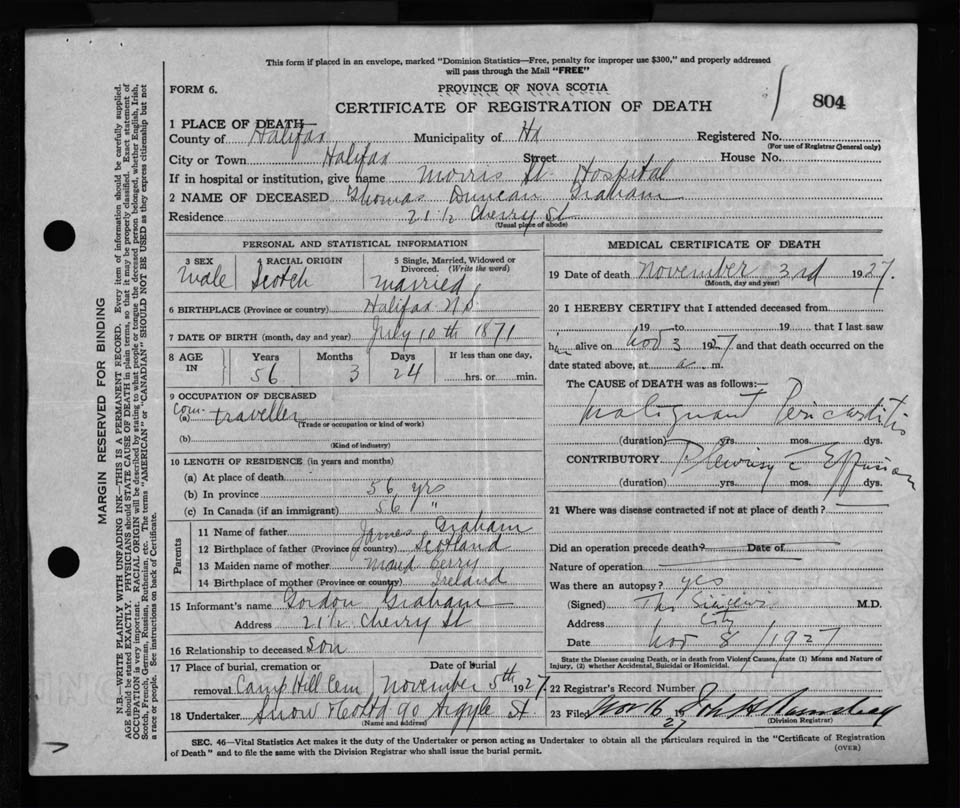 This form if placed in an envelope, marked "Dominion Statistics—Free, penalty for improper use $300," and properly addressed
will pass through the Mail "FREE"
FORM 6.
PROVINCE OF NOVA SCOTIA
CERTIFICATE OF REGISTRATION OF DEATH
804
1 PLACE OF DEATH—
County of Halifax Municipality of Hx Registered No.
(For use of Registrar General only)
City or Town Halifax Street House No.
If in hospital or institution, give name Morris St. Hospital
2 NAME OF DECEASED Thomas Duncan Graham
Residence 21½ Cherry St
(Usual place of abode)
PERSONAL AND STATISTICAL INFORMATION
3 SEX 4 RACIAL ORIGIN 5 Single, Married, Widowed or
Divorced. (Write the word)
Male Scotch Married
6 BIRTHPLACE (Province or country) Halifax N.S
7 DATE OF BIRTH (month, day and year) July 10th 1871
8 AGE IN Years Months Days If less than one day,
56 3 24 hrs. or min.
9 OCCUPATION OF DECEASED
(a) Com. traveller
(Trade or occupation or kind of work)
(b)
(Kind of industry)
10 LENGTH OF RESIDENCE (in years and months)
(a) At place of death
(b) In province 56 yrs
(c) In Canada (if an immigrant) 56 "
Parents
11 Name of father James Graham
12 Birthplace of father (Province or country) Scotland
13 Maiden name of mother Maud Berry
14 Birthplace of mother (Province or country) Ireland
15 Informant's name Gordon Graham
Address 21½ Cherry St
16 Relationship to deceased Son
17 Place of burial, cremation or Date of burial
removal Camp Hill Cem November 5th 1927
18 Undertaker Snow & Co Ltd 90 Argyle St
(Name and address)
MEDICAL CERTIFICATE OF DEATH
19 Date of death November 3rd 1927.
(Month, day and year)
20 I HEREBY CERTIFY that I attended deceased from
19 to 19 that I last saw
him alive on Nov 3 1927 and that death occurred on the
date stated above, at a m.
The CAUSE OF DEATH was as follows:—
Malignant Pericarditis
(duration) yrs. mos. dys.
CONTRIBUTORY Pleurisy c̄ Effusion
(duration) yrs. mos. dys.
21 Where was disease contracted if not at place of death?
Did an operation precede death? Date of
Nature of operation
Was there an autopsy? yes
(Signed) M.D.
Address City
Date Nov 8/1927
State the Disease causing Death, or in death from Violent Causes, state (1) Means and Nature of
Injury, (2) whether Accidental, Suicidal or Homicidal.
22 Registrar's Record Number
23 Filed Nov 16 1927 John H
(Division Registrar)
SEC. 46—Vital Statistics Act makes it the duty of the Undertaker or person acting as Undertaker to obtain all the particulars required in the "Certificate of Registration
of Death" and to file the same with the Division Registrar who shall issue the burial permit.
(OVER)
MARGIN RESERVED FOR BINDING
N.B.—WRITE PLAINLY WITH UNFADING INK—THIS IS A PERMANENT RECORD. Every item of information should be carefully supplied.
AGE should be stated EXACTLY. PHYSICIANS should STATE CAUSE OF DEATH in plain terms, so that it may be properly classified. Exact statement of
OCCUPATION is very important. RACIAL ORIGIN will be described by stating to what people or tongue the deceased person belonged, whether English, Irish,
Scotch, French, German, Russian, Ruthenian, etc. The terms "AMERICAN" or "CANADIAN" SHOULD NOT BE USED as they express citizenship but not
a race or people. See instructions on back of Certificate.